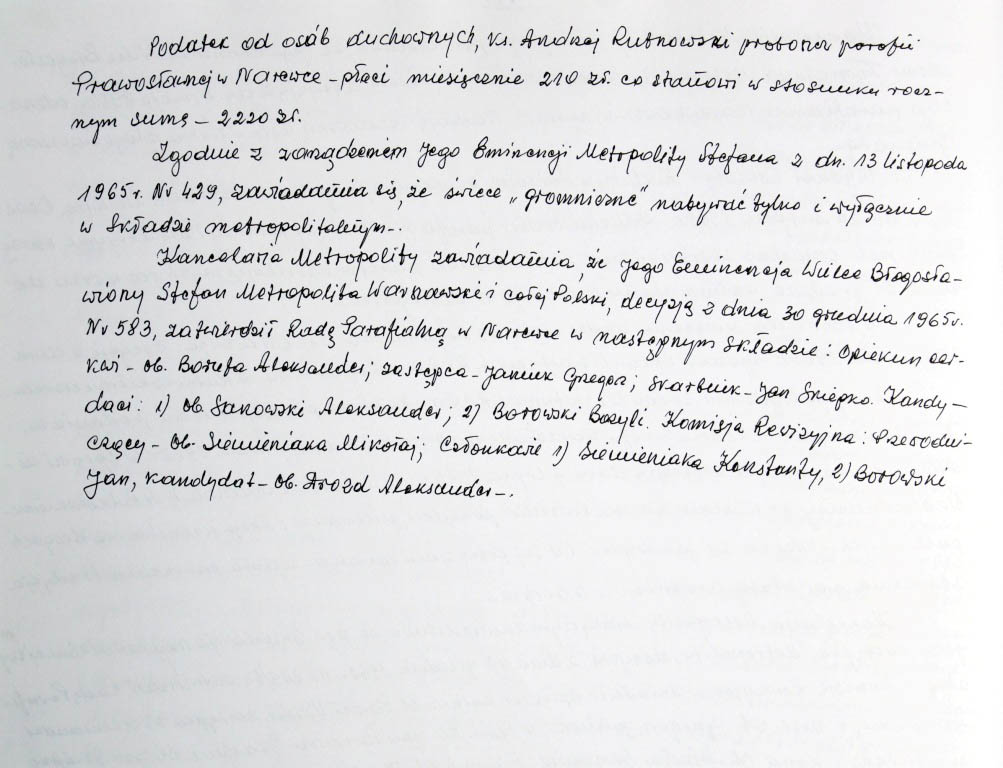 Podatek od osób duchownych, Ks. Andrzej Rutnowski proboszcz parafii
Prawosławnej w Narewce – płaci miesięcznie 210 zł. co stanowi w stosunku rocz-
nym sumę – 2220 zł.
Zgodnie z zarządzeniem Jego Eminencji Metropolity Stefana z dn. 13 listopada
1965 r. Nr 429, zawiadamia się, że świece „gromniczne" nabywać tylko i wyłącznie
w składzie metropolitalnym-.
Kancelaria Metropolity zawiadamia, że Jego Eminencja Wielce Błogosła-
wiony Stefan Metropolita Warszawski i całej Polski, decyzją z dnia 30 grudnia 1965 r.
Nr 583, zatwierdził Radę Parafialną w Narewce w następnym składzie: Opiekun cer-
kwi – ob. Aleksander; zastępca – Janiuk Grzegorz; skarbnik – Jan Skiepko. Kandy-
daci: 1) ob. Sanowski Aleksander; 2) Borowski Bazyli. Komisja Rewizyjna: Przewodni-
czący – ob. Siemieniaka Mikołaj; Członkowie 1) Siemieniaka Konstanty, 2) Borowski
Jan, kandydat – ob. Drozd Aleksander-.